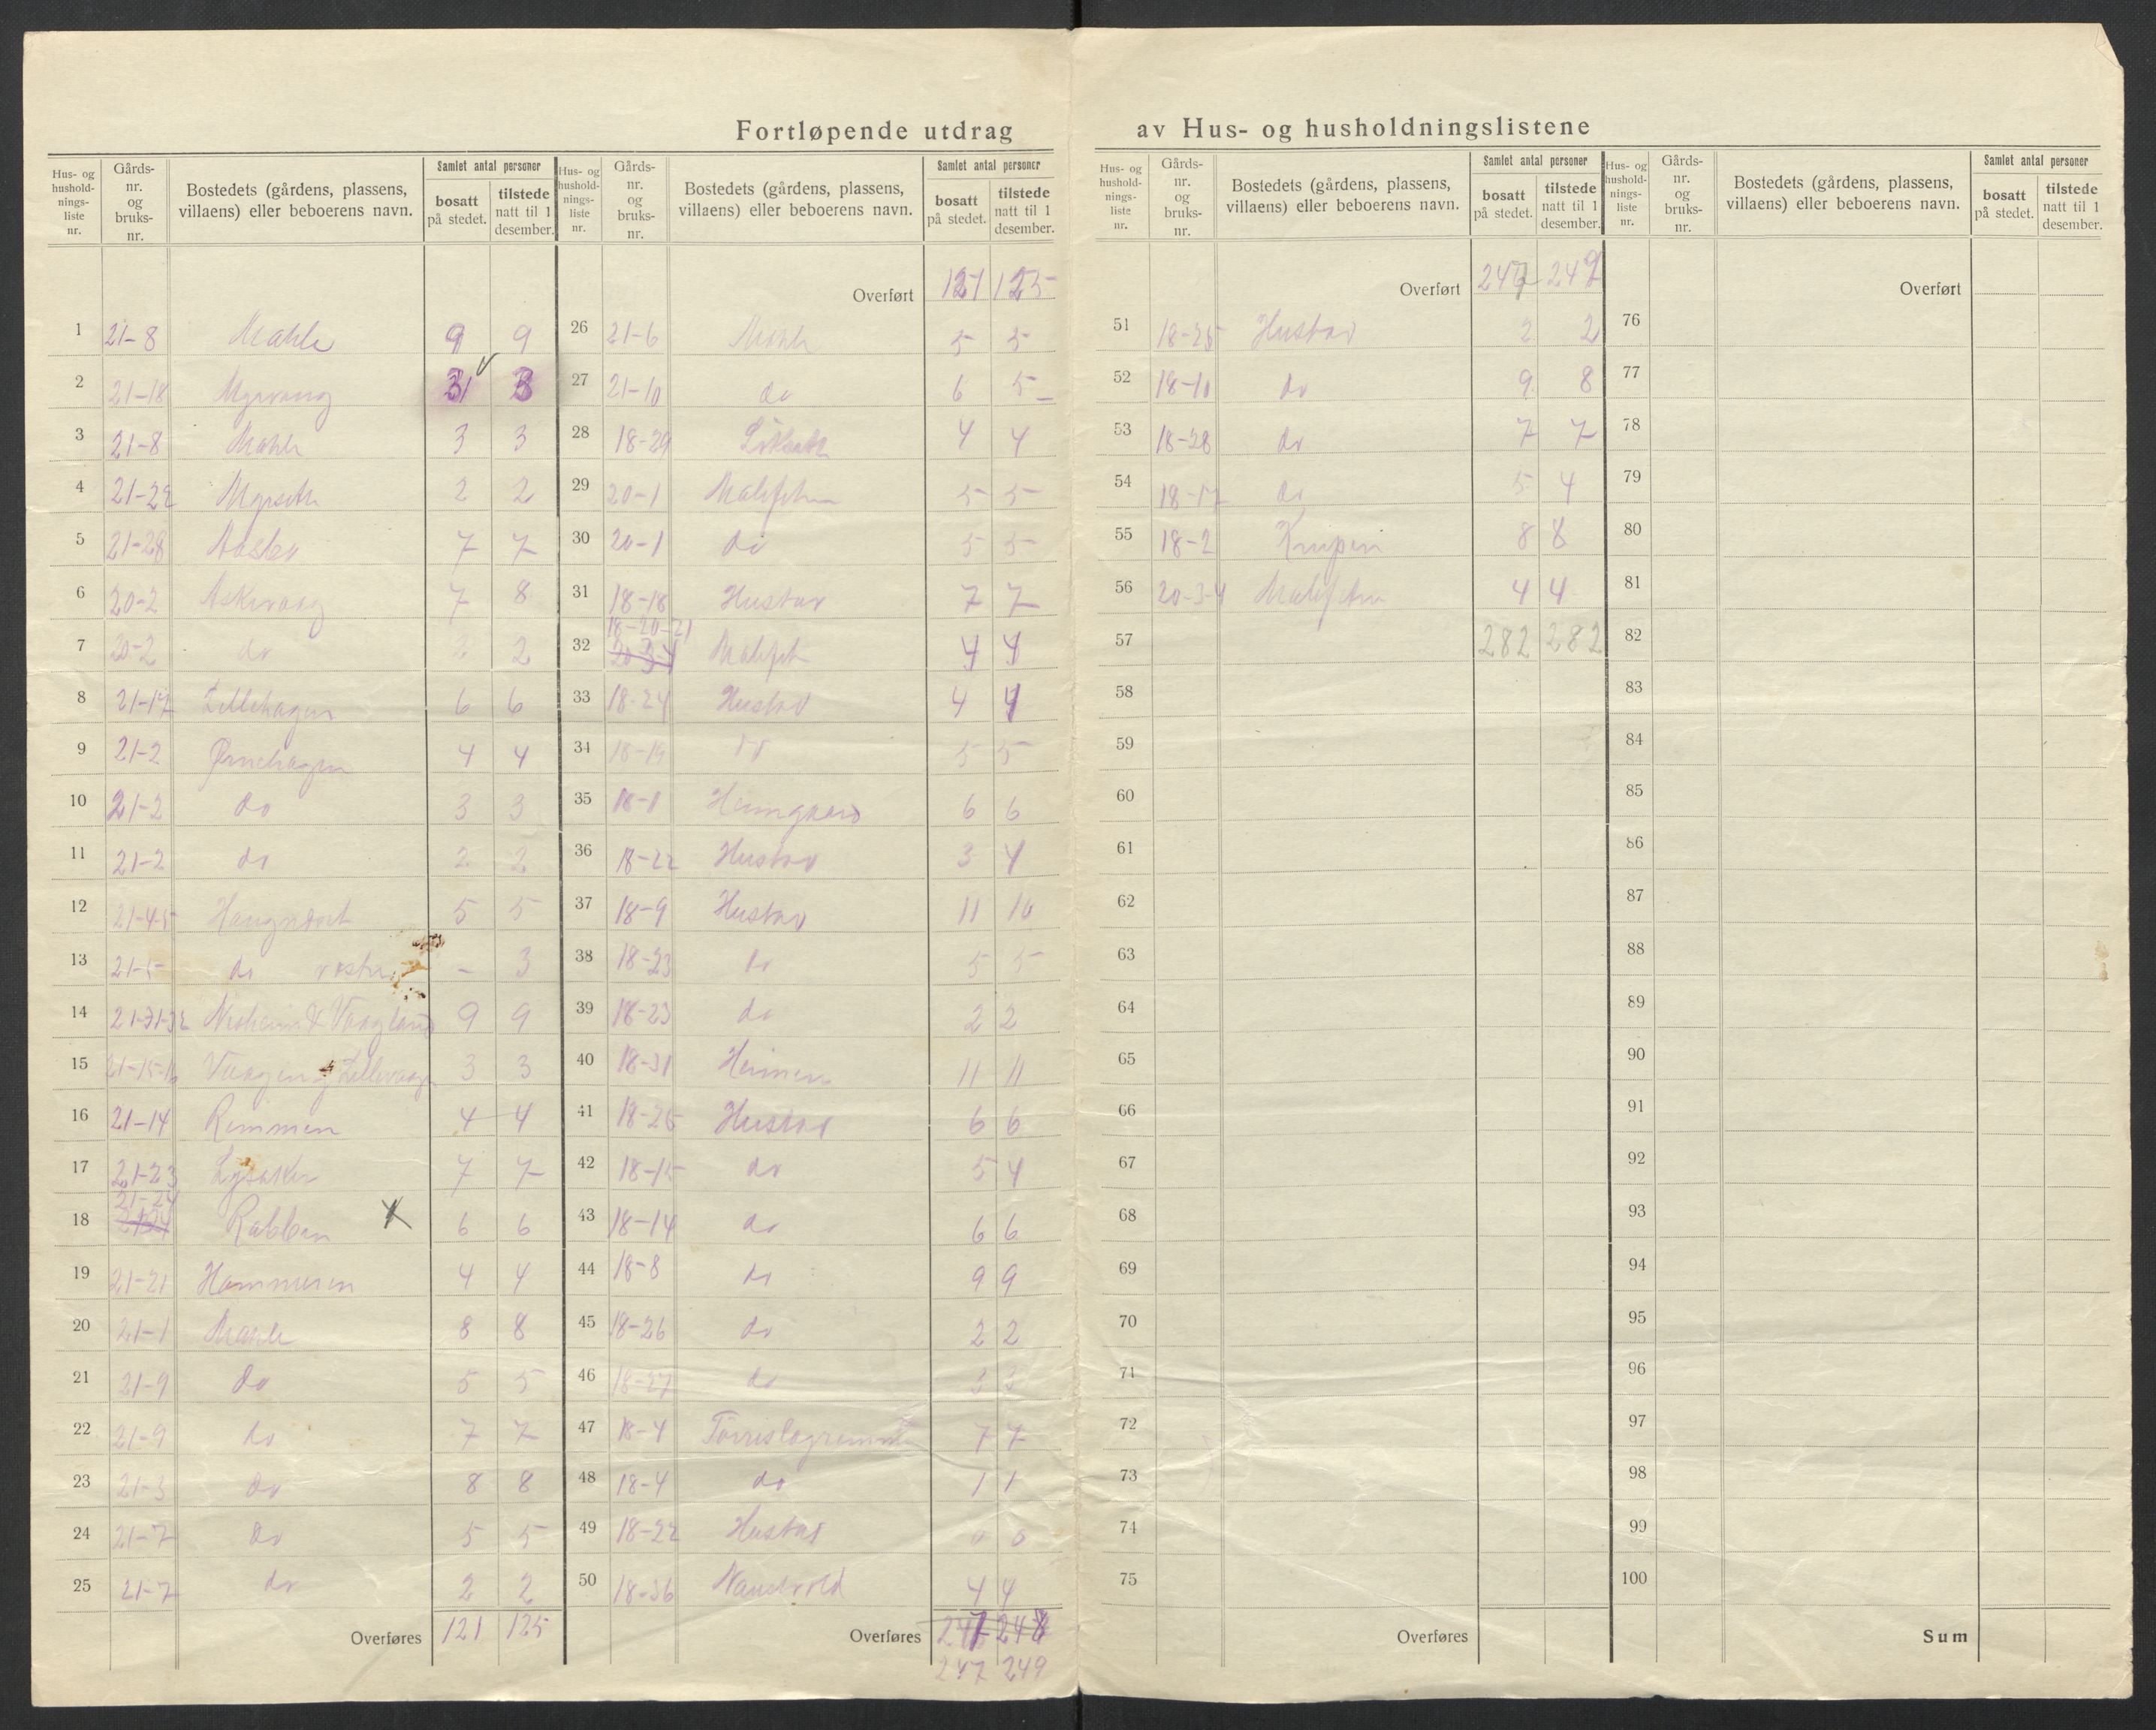 Fortløpende utdrag av Hus- og husholdningslistene
Hus- og husholdnings-liste nr. Gårds-nr. og bruks-nr. Bostedets (gårdens, plassens, villaens) eller beboerens navn. Samlet antal personer bosatt på stedet. tilstede natt til 1 desember.
1 21-8 Mahle 9 9
2 21-18 Myrvang 3 3
3 21-8 Mahle 3 3
4 21-22 Myrseth 2 2
5 21-28 7 7
6 20-2 Askevaag 7 8
7 20-2 do 2 2
8 21-17 Lillehagen 6 6
9 21-2 Ørnehagen 4 4
10 21-2 do 3 3
11 21-2 do 2 2
12 21-4-5 5 5
13 21-5 do – 3
14 21-31-32 Nesheim & Vaagland 9 9
15 21-15-16 Vaagen og Lillevaagen 3 3
16 21-14 Remmen 4 4
17 21-23 Lysaker 7 7
18 21-24 Rabben 6 6
19 21-21 Hammeren 4 4
20 21-1 Mahle 8 8
21 21-9 do 5 5
22 21-9 do 7 7
23 21-3 do 8 8
24 21-7 do 5 5
25 21-7 do 2 2
Overføres 121 125
Hus- og husholdnings-liste nr. Gårds-nr. og bruks-nr. Bostedets (gårdens, plassens, villaens) eller beboerens navn. Samlet antal personer bosatt på stedet. tilstede natt til 1 desember.
Overført 121 125
26 21-6 Mahle 5 5
27 21-10 do 6 5
28 18-29 4 4
29 20-1 Malefeten 5 5
30 20-1 do 5 5
31 18-18 Hustad 7 7
18-20-21
32 20-3-4 Malefet 4 4
33 18-24 Hustad 4 4
34 18-19 do 5 5
35 18-1 Heimgaard 6 6
36 18-22 Hustad 3 4
37 18-9 Hustad 11 10
38 18-23 do 5 5
39 18-23 do 2 2
40 18-31 Heimen 11 11
41 18-25 Hustad 6 6
42 18-15 do 5 4
43 18-14 do 6 6
44 18-8 do 9 9
45 18-26 do 2 2
46 18-27 do 3 3
47 18-4 Torrislagremmen 7 7
48 18-4 do 1 1
49 18-22 Hustad 0 0
50 18-36 Naustvold 4 4
Overføres 247 248
247 249
Hus- og husholdnings-liste nr. Gårds-nr. og bruks-nr. Bostedets (gårdens, plassens, villaens) eller beboerens navn. Samlet antal personer bosatt på stedet. tilstede natt til 1 desember.
Overført 247 249
51 18-25 Hustad 2 2
52 18-10 do 9 8
53 18-28 do 7 7
54 18-17 do 5 4
55 18-2 Knupen 8 8
56 20-3-4 Malefeten 4 4
57 282 282
58
59
60
61
62
63
64
65
66
67
68
69
70
71
72
73
74
75
Overføres
Hus- og husholdnings-liste nr. Gårds-nr. og bruks-nr. Bostedets (gårdens, plassens, villaens) eller beboerens navn. Samlet antal personer bosatt på stedet. tilstede natt til 1 desember.
Overført
76
77
78
79
80
81
82
83
84
85
86
87
88
89
90
91
92
93
94
95
96
97
98
99
100
Sum